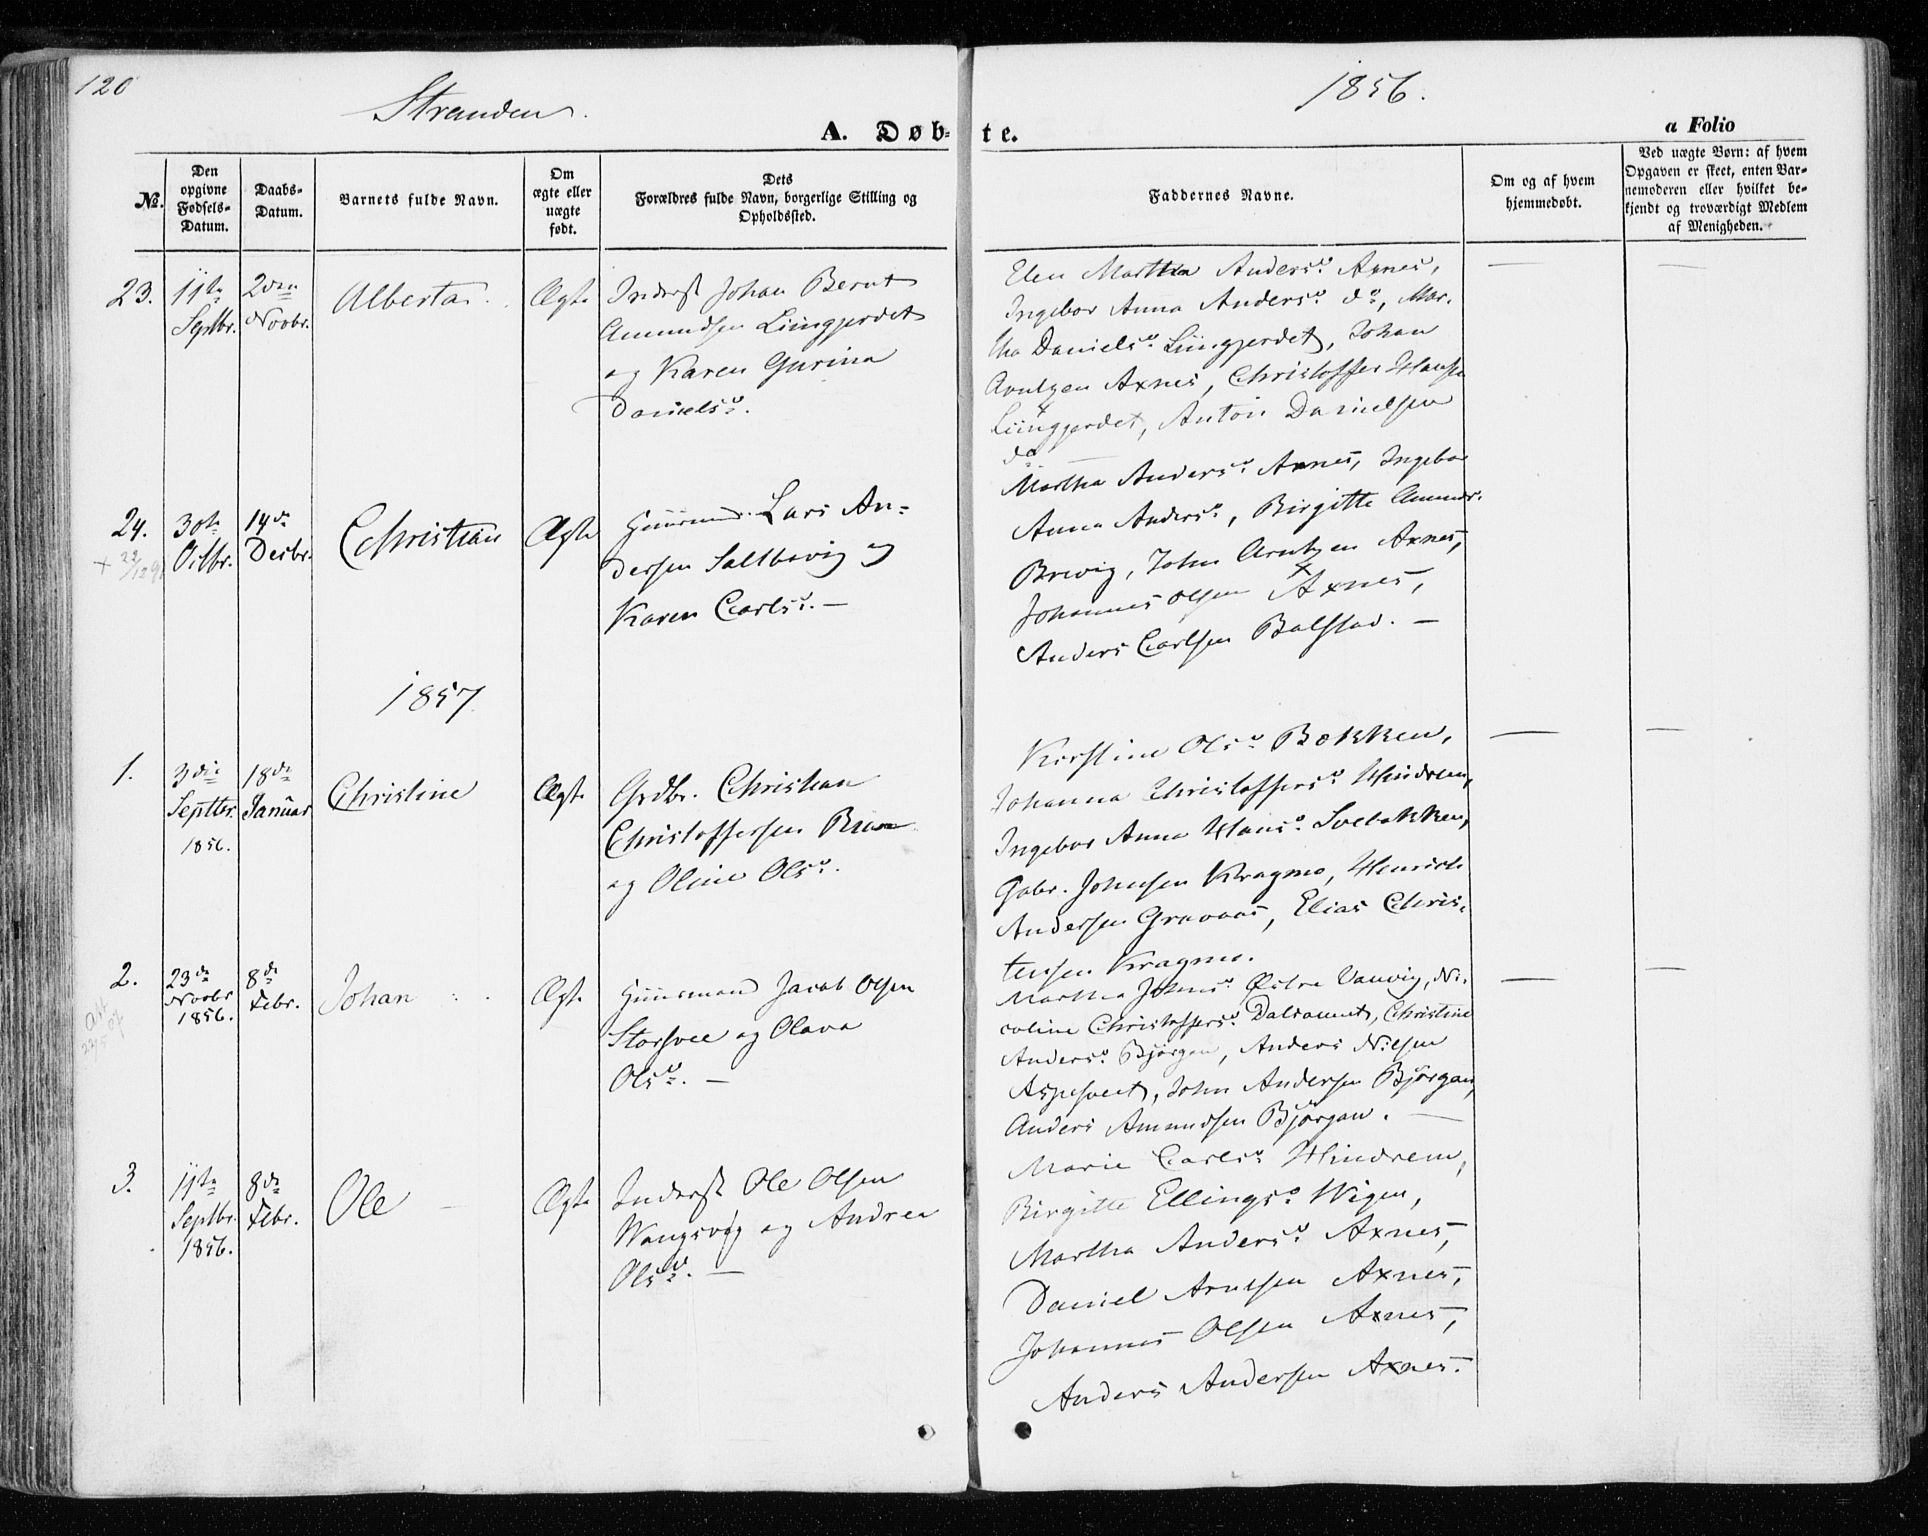 120
Stranden.
1856.
A. Døb-
te.
a Folio
No.
Den
opgivne
Fødsels-
Datum.
Daabs-
Datum.
Barnets fulde Navn.
Om
ægte eller
uægte
født.
Dets
Forældres fulde Navn, borgerlige Stilling og
Opholdssted.
Faddernes Navne.
Om og af hvem
hjemmedøbt.
Ved uægte Børn: af hvem
Opgaven er skeet, enten Bar-
nemoderen eller hvilket be-
kjendt og troværdigt Medlem
af Menigheden.
23.
11te
Septbr.
2den
Novbr.
Alberta
Ægte
Inderst Johan Bernt
Amundsen Liingjerdet
og Karen Gurina
Danielsd.
Elen Martha Andersd. Axnes,
Ingebor Anna Andersd. do, Mar-
tha Danielsd. Liingjerdet, Johan
Arntzen Axnes, Christoffer Hansen
Liingjerdet, Anton Danielsen
do
24.
30te
Octbr.
14de
Decbr.
Christian
Ægte
Huusmd. Lars An-
dersen Saltbevig og
Karen Carlsd. —
Martha Andersd. Axnes, Ingebor
Anna Andersd., Birgitte Amunds.
Brevig, John Arntzen Axnes,
Johannes Olsen Axnes,
Anders Carlsen Balstad. —
1857
1.
3die
Septbr.
1856.
18de
Januar
Christine
Ægte
Grdbr. Christian
Christoffersen Bruen
og Oline Olsd.
Kirstine Olsd. Bækken,
Johanna Christoffersd. Hindrem,
Ingebor Anna Hansd. Svebakken,
Gabr. Johnsen Kragmo, Henrich
Andersen Gravaas, Elias Chris-
tensen Kragmo.
2.
23de
Novbr
1856.
8de
Febr.
Johan
Ægte
Huusmand Jacob Olsen
Storsvee og Olava
Olsd. —
Martha Johnsd. Østre Vanvig, Ni-
coline Christoffersd. Daldammet, Christine
Andersd. Bjørgan, Anders Nilsen
Aspesveet, John Andersen Bjørgan,
Anders Amundsen Bjørgan. —
3.
11te
Septbr.
1856.
8de
Febr.
Ole
Ægte
Inderst Ole Olsen
Wangsvig og Andrea
Olsd. —
Marie Carlsd. Hindrem,
Birgitte Ellingsd. Wigen,
Martha Andersd. Axnes,
Daniel Arntsen Axnes,
Johannes Olsen Axnes,
Anders Andersen Axnes.